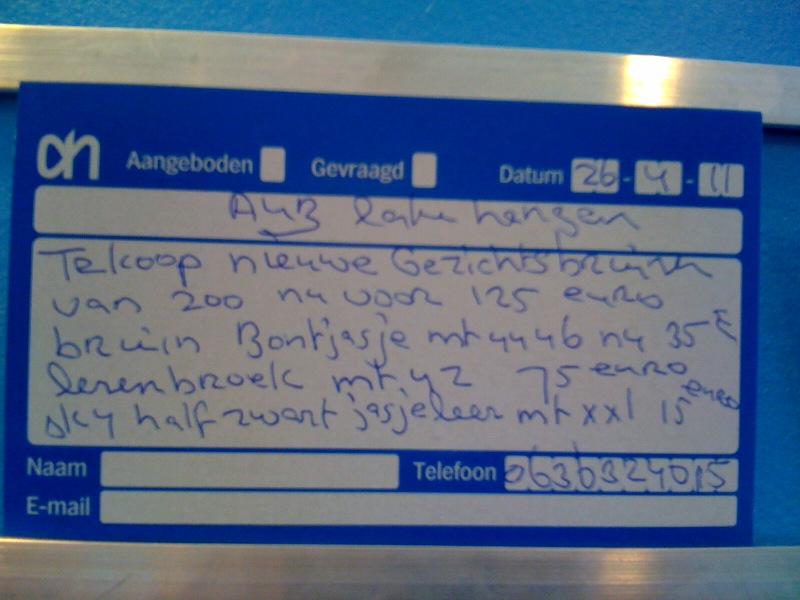 ah Aangeboden Gevraagd Datum 26-4-11
AUB laten hangen
Te koop nieuwe Gezichtsbruin
van 200 nu voor 125 euro
bruin Bontjasje mt 44 46 nu 35 E
lerenbroek mt. 42 75 euro
sky half zwart jasje leer mt xxl 15 euro
Naam Telefoon 0636324015
E-mail